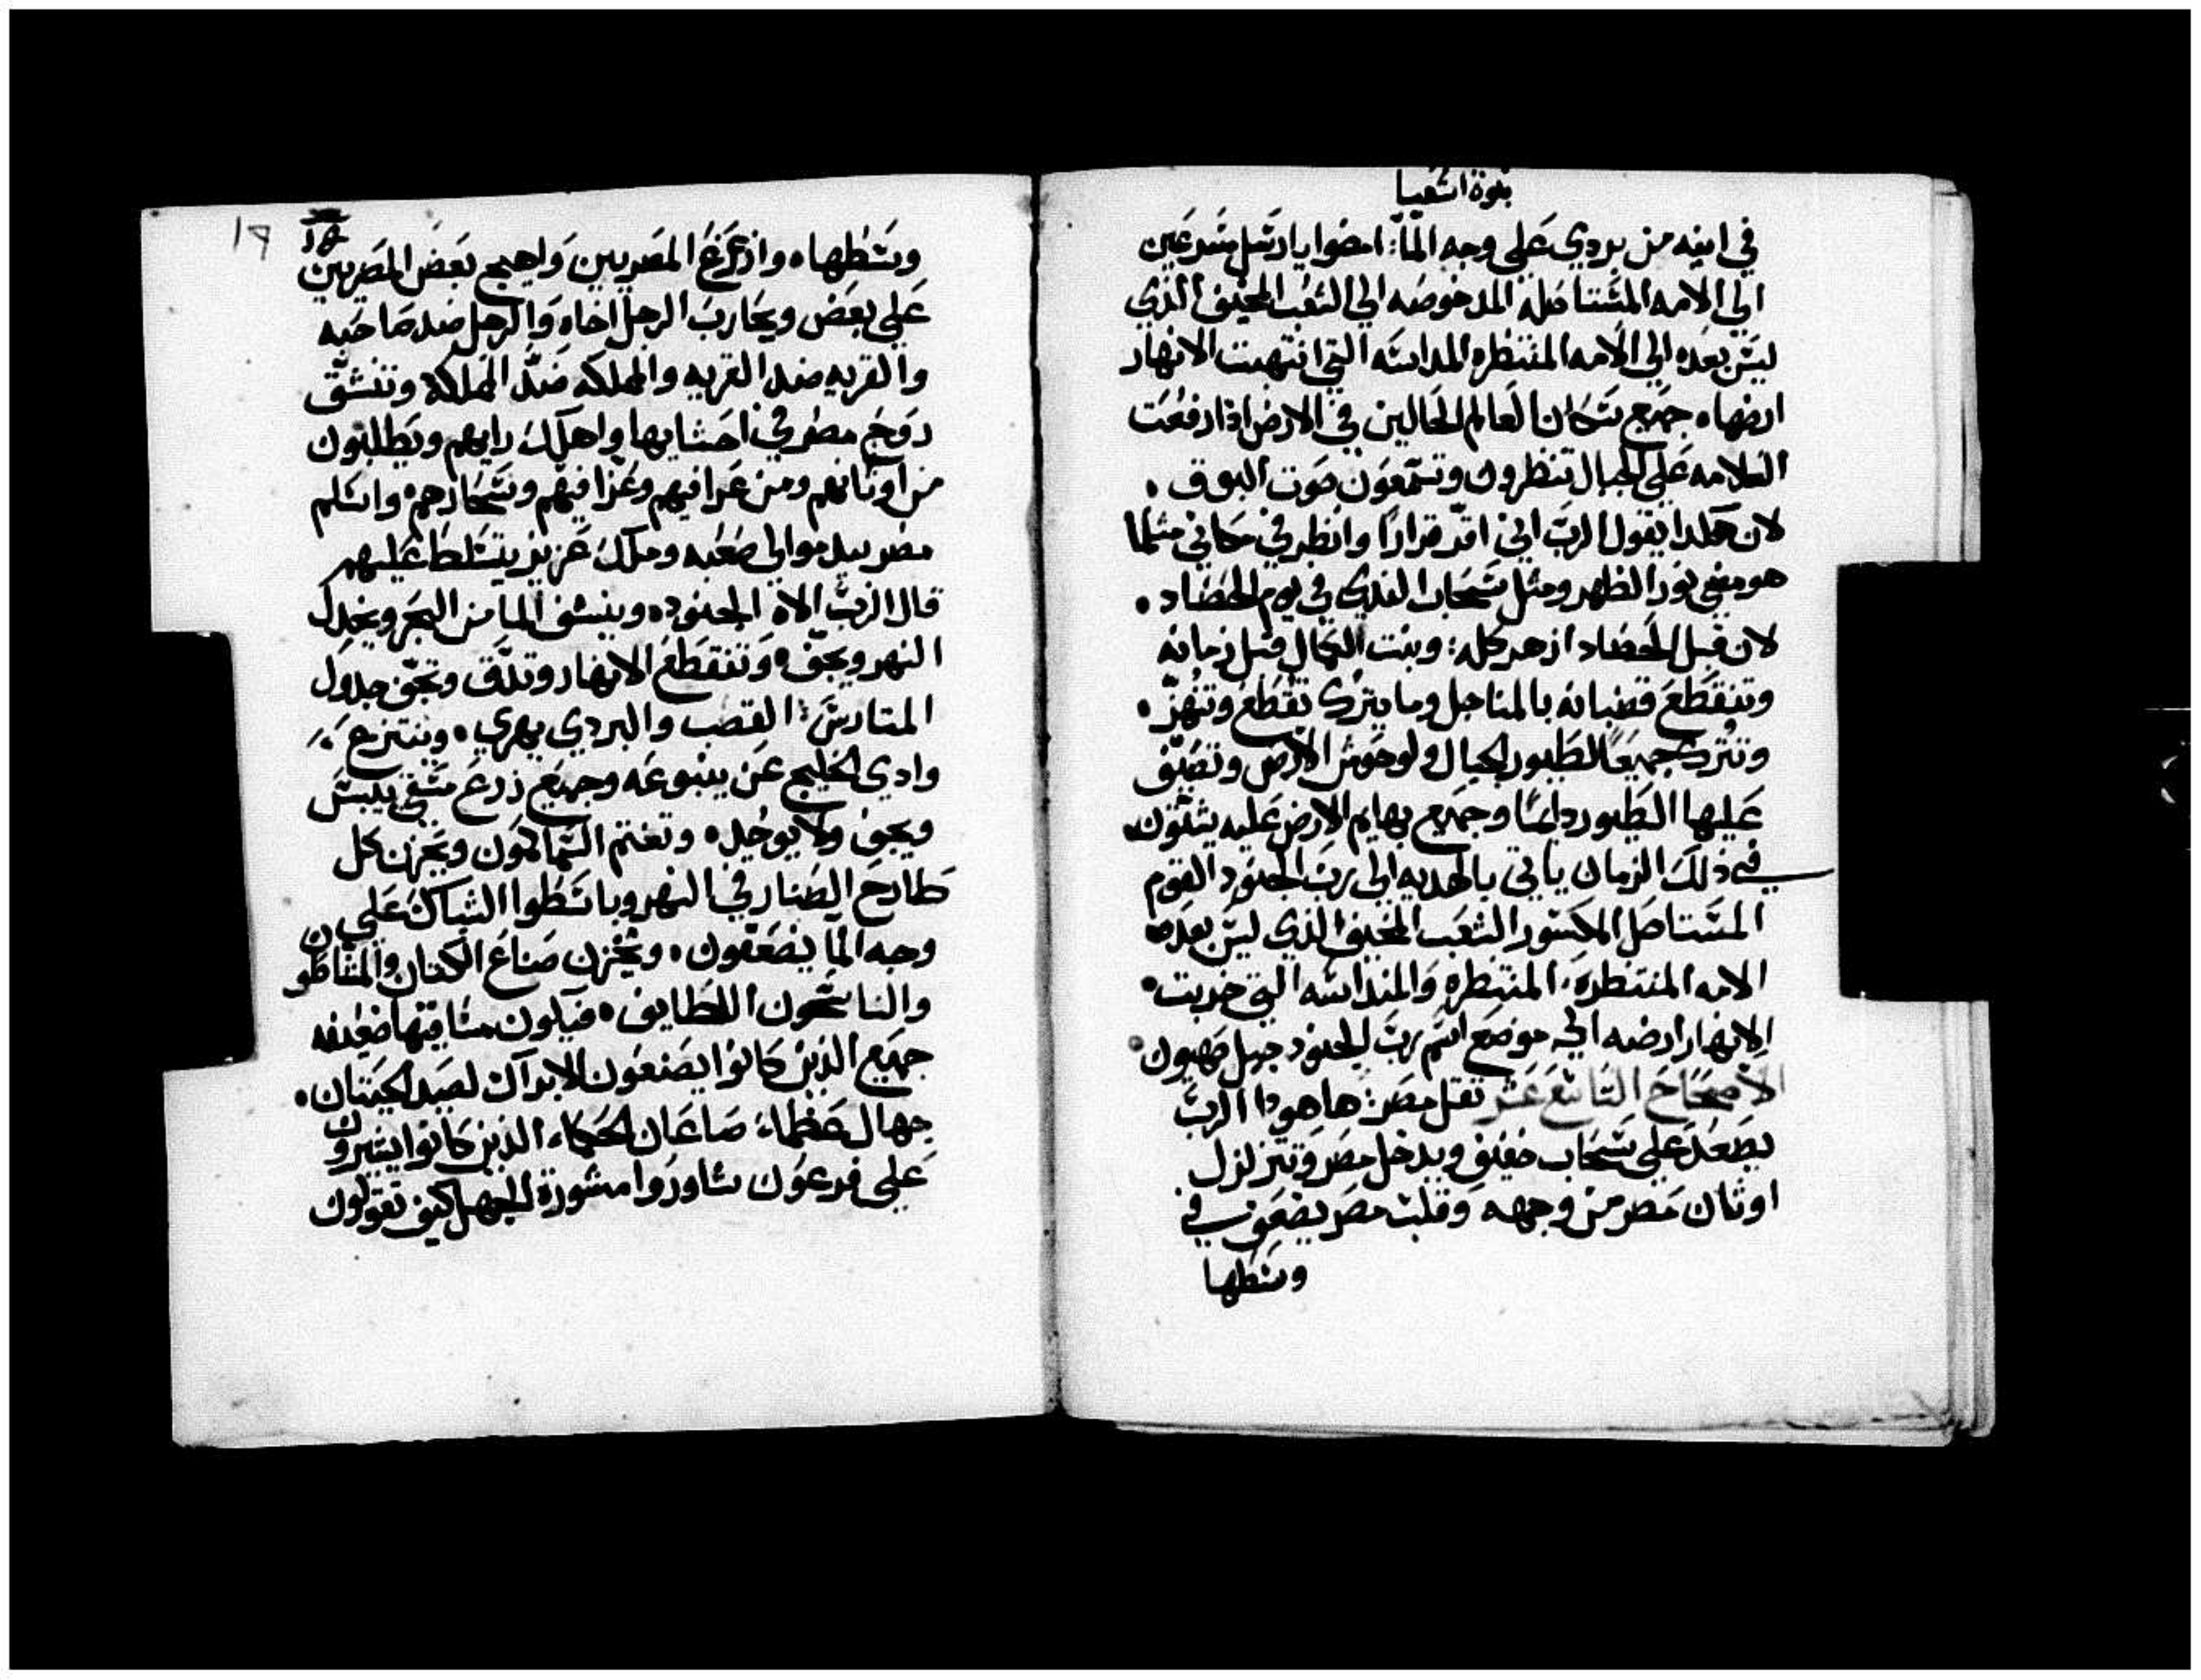 نبوة اشعيا
في انيه من بردي على وجه الماء: امضوا يا رسل مسرعين
الى الامه المستاصله المدحوضه الى الشعب المخيف الذي
ليس بعده الى الامه المنتظره المداسه التي انتهبت الانهار
ارضها. جميع سكان العالم الحالين في الارض اذا رفعت
العلامه على الجبال تنظرون وتسمعون صوت البوق.
لان هكذا يقول الرب الي اقر قرارا وانظر في مكاني مثلما
هو مضي نور الظهر ومثل سحاب الندي في يوم الحصاد.
لان قبل الحصاد ازهر كله: ونبت الكمال قبل زمانه
وتنقطع قضبانه بالمناجل وما يترك تقطع وتنهز.
وتترك جميعا لطيور الجبال ولوحوش الارض وتصيف
عليها الطيور دايما وجميع بهايم الارض عليه يشتون
في ذلك الزمان ياتي بالهديه الى رب الجنود القوم
المستاصل المكسور الشعب المخيف الذي ليس بعده
الامه المنتظره، المنتظره والمنداسه التي خربت
الانهار ارضه الي موضع اسم رب الجنود جبل صهيون
الاصحاح التاسع عشر ثقل مصر: ها هوذا الرب
يصعد على سحاب خفيف ويدخل مصر وتتزلزل
اوثان مصر من وجهه وقلب مصر يضمحل في
وسطها
١٩
وسطها. وازعزع المصريين واهيج بعض المصريين
على بعض ويحارب الرجل اخاه والرجل ضد صاحبه
والقريه ضد القريه والمملكه ضد المملكه وتنشق
روح مصر في احشايها واهلك رايهم ويطلبون
من اوثانهم ومن عرافيهم وعزافيهم وسحارهم واسلم
مصر بيد موالي صعبه وملك عزيز يتسلط عليهم
قال الرب الاه الجنود. وينشف الما من البحر ويخدل
النهر ويجف. وتنقطع الانهار وتدق وتجف جداول
المتارس: القصب والبردي يهري. وينتزع
وادي الخليج عن ينبوعه وجميع زرع سقي ييبس
ويجف ولا يوجد. وتغتم السماكون ويحزن كل
طارح الصنار في النهر وباسطوا الشباك على
وجه الما يضعفون. ويخزن صناع الكتان والمشاطون
والناسجون اللطايف. فيكون مساقيتها ضعيفه
جميع الذين كانوا يصنعون الابراك لصيد الحيتان.
جهال عظماء صاعان الحكماء الذين كانوا يشيرون
على فرعون شاوروا مشورة الجهل كيف تقولون